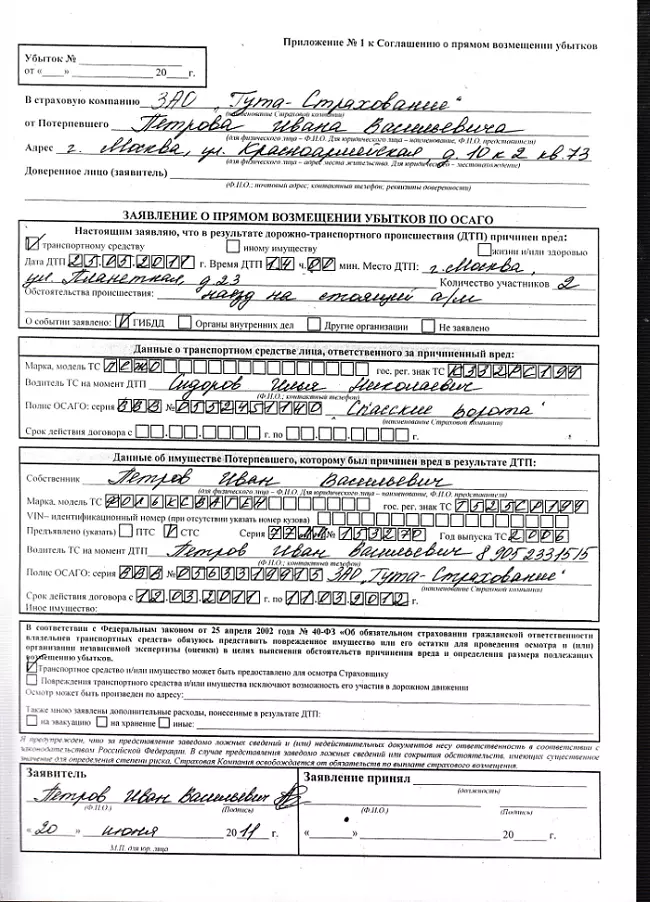 Приложение № 1 к Соглашению о прямом возмещении убытков
Убыток №
от «____» ____________ 20____г.
В страховую компанию ЗАО "Гута-Страхование"
(наименование Страховой компании)
от Потерпевшего Петрова Ивана Васильевича
(для физического лица – Ф.И.О. Для юридического лица – наименование, Ф.И.О. представителя)
Адрес г. Москва, ул. Красноармейская д. 10 к 2 кв. 73
(для физического лица – адрес места жительства. Для юридического – местонахождение)
Доверенное лицо (заявитель)
(Ф.И.О.; почтовый адрес; контактный телефон; реквизиты доверенности)
ЗАЯВЛЕНИЕ О ПРЯМОМ ВОЗМЕЩЕНИИ УБЫТКОВ ПО ОСАГО
Настоящим заявляю, что в результате дорожно-транспортного происшествия (ДТП) причинен вред:
транспортному средству иному имуществу жизни и/или здоровью
Дата ДТП г. Время ДТП 14 ч. 00 мин. Место ДТП: г. Москва,
ул. Планетная, д. 23 Количество участников 2
Обстоятельства происшествия: наезд на стоящей а/м
О событии заявлено: ГИБДД Органы внутренних дел Другие организации Не заявлено
Данные о транспортном средстве лица, ответственного за причиненный вред:
Марка, модель ТС ПЕЖО гос. рег. знак ТС
Водитель ТС на момент ДТП Сидоров Илья Николаевич
(Ф.И.О.; контактный телефон)
Полис ОСАГО: серия ВВВ № 0552451140 Спасские ворота
(наименование Страховой компании)
Срок действия договора с г. по г.
Данные об имуществе Потерпевшего, которому был причинен вред в результате ДТП:
Собственник Петров Иван Васильевич
(для физического лица – Ф.И.О. Для юридического лица – наименование, Ф.И.О. представителя)
Марка, модель ТС ФОЛЬКСВАГЕН гос. рег. знак ТС
VIN– идентификационный номер (при отсутствии указать номер кузова)
Предъявлено (указать) ПТС СТС Серия № 153270 Год выпуска ТС 2006
Водитель ТС на момент ДТП Петров Иван Васильевич 8 905 2331515
(Ф.И.О.; контактный телефон)
Полис ОСАГО: серия ВВВ № 0563319915 ЗАО "Гута-Страхование"
(наименование Страховой компании)
Срок действия договора с 12.03.2011 г. по 11.03.2012 г.
Иное имущество:
В соответствии с Федеральным законом от 25 апреля 2002 года № 40-ФЗ «Об обязательном страховании гражданской ответственности
владельцев транспортных средств» обязуюсь представить поврежденное имущество или его остатки для проведения осмотра и (или)
организации независимой экспертизы (оценки) в целях выяснения обстоятельств причинения вреда и определения размера подлежащих
возмещению убытков.
Транспортное средство и/или имущество может быть предоставлено для осмотра Страховщику
Повреждения транспортного средства и/или имущества исключают возможность его участия в дорожном движении
Осмотр может быть произведен по адресу:
Также мною заявлены дополнительные расходы, понесенные в результате ДТП:
на эвакуацию на хранение иные:
Я предупрежден, что за представление заведомо ложных сведений и (или) недействительных документов несу ответственность в соответствии с
законодательством Российской Федерации. В случае представления заведомо ложных сведений или сокрытия обстоятельств, имеющих существенное
значение для определения степени риска, Страховая Компания освобождается от обязательств по выплате страхового возмещения.
Заявитель Заявление принял
(должность)
Петров Иван Васильевич
(Ф.И.О.) (Подпись) (Ф.И.О.) (Подпись)
«20» июня 2011 г. «____» ____________ 20____ г.
М.П. для юр. лица